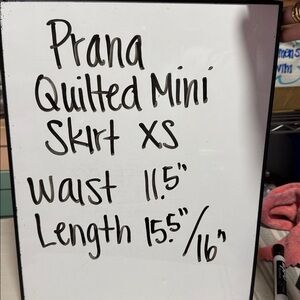 Prana
Quilted Mini
Skirt XS
Waist 11.5"
Length 15.5"/16"